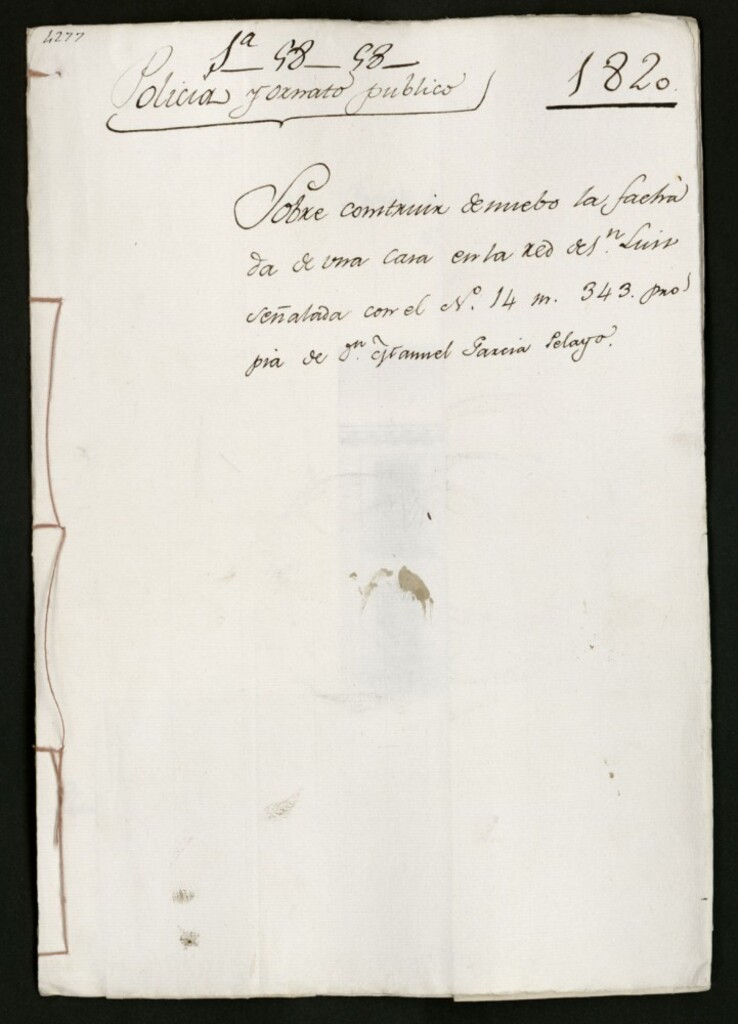 4277
1ª-58-58-
Policia y ornato publico
1820.
Sobre construir de nuebo la facha
da de una casa en la red de Sn. Luis
señalada con el Nº. 14 m. 343. pro
pia de Dn. Manuel Garcia Pelayo.